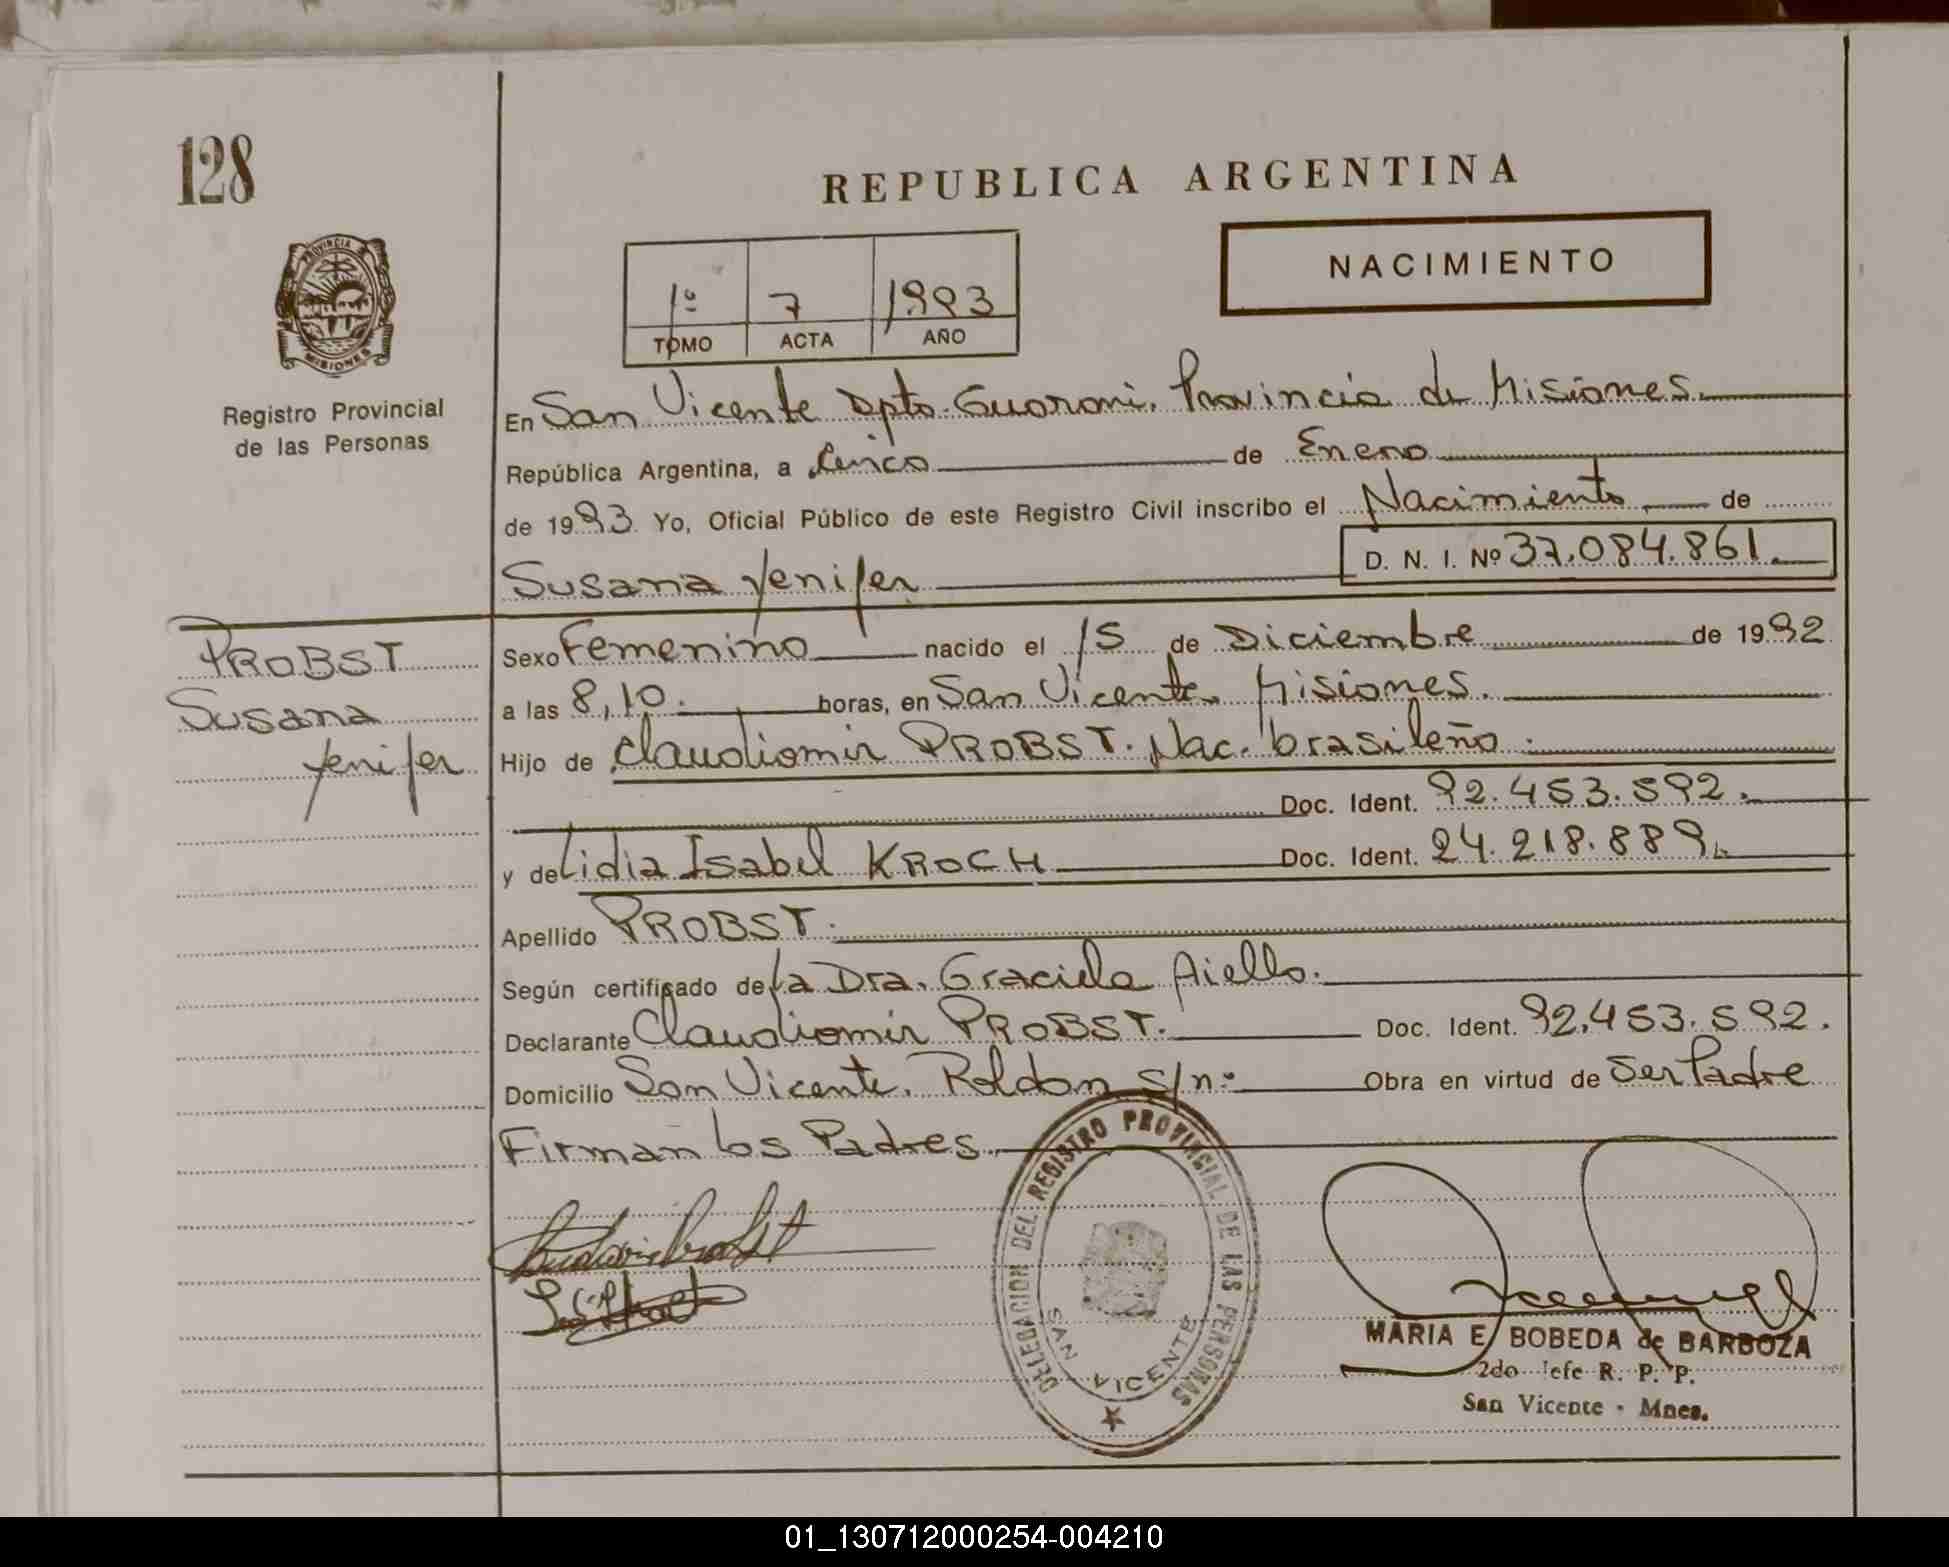 128
REPUBLICA ARGENTINA
PROVINCIA
MISIONES
Registro Provincial
de las Personas
NACIMIENTO
1º 7 1993
TOMO ACTA AÑO
En San Vicente Dpto. Guarani. Provincia de Misiones.
República Argentina, a Cinco de Enero
de 1993. Yo, Oficial Público de este Registro Civil inscribo el Nacimiento de
D. N. I. Nº 37.084.861.
Susana Yenifer
PROBST
Susana
Yenifer
Sexo Femenino nacido el 15 de Diciembre de 1992
a las 8,10. horas, en San Vicente. Misiones.
Hijo de Claudiomir PROBST. Nac. brasileño.
Doc. Ident. 92.453.592.
y de Lidia Isabel KROCH Doc. Ident. 24.218.889.
Apellido PROBST.
Según certificado de la Dra. Graciela Aiello.
Declarante Claudiomir PROBST. Doc. Ident. 92.453.592.
Domicilio San Vicente. Roldan s/nº Obra en virtud de Ser Padre
Firman los Padres.
DELEGACION DEL REGISTRO PROVINCIAL DE LAS PERSONAS
SAN VICENTE
MARIA E. BOBEDA de BARBOZA
2do Jefe R. P. P.
San Vicente - Mnes.
01_130712000254-004210